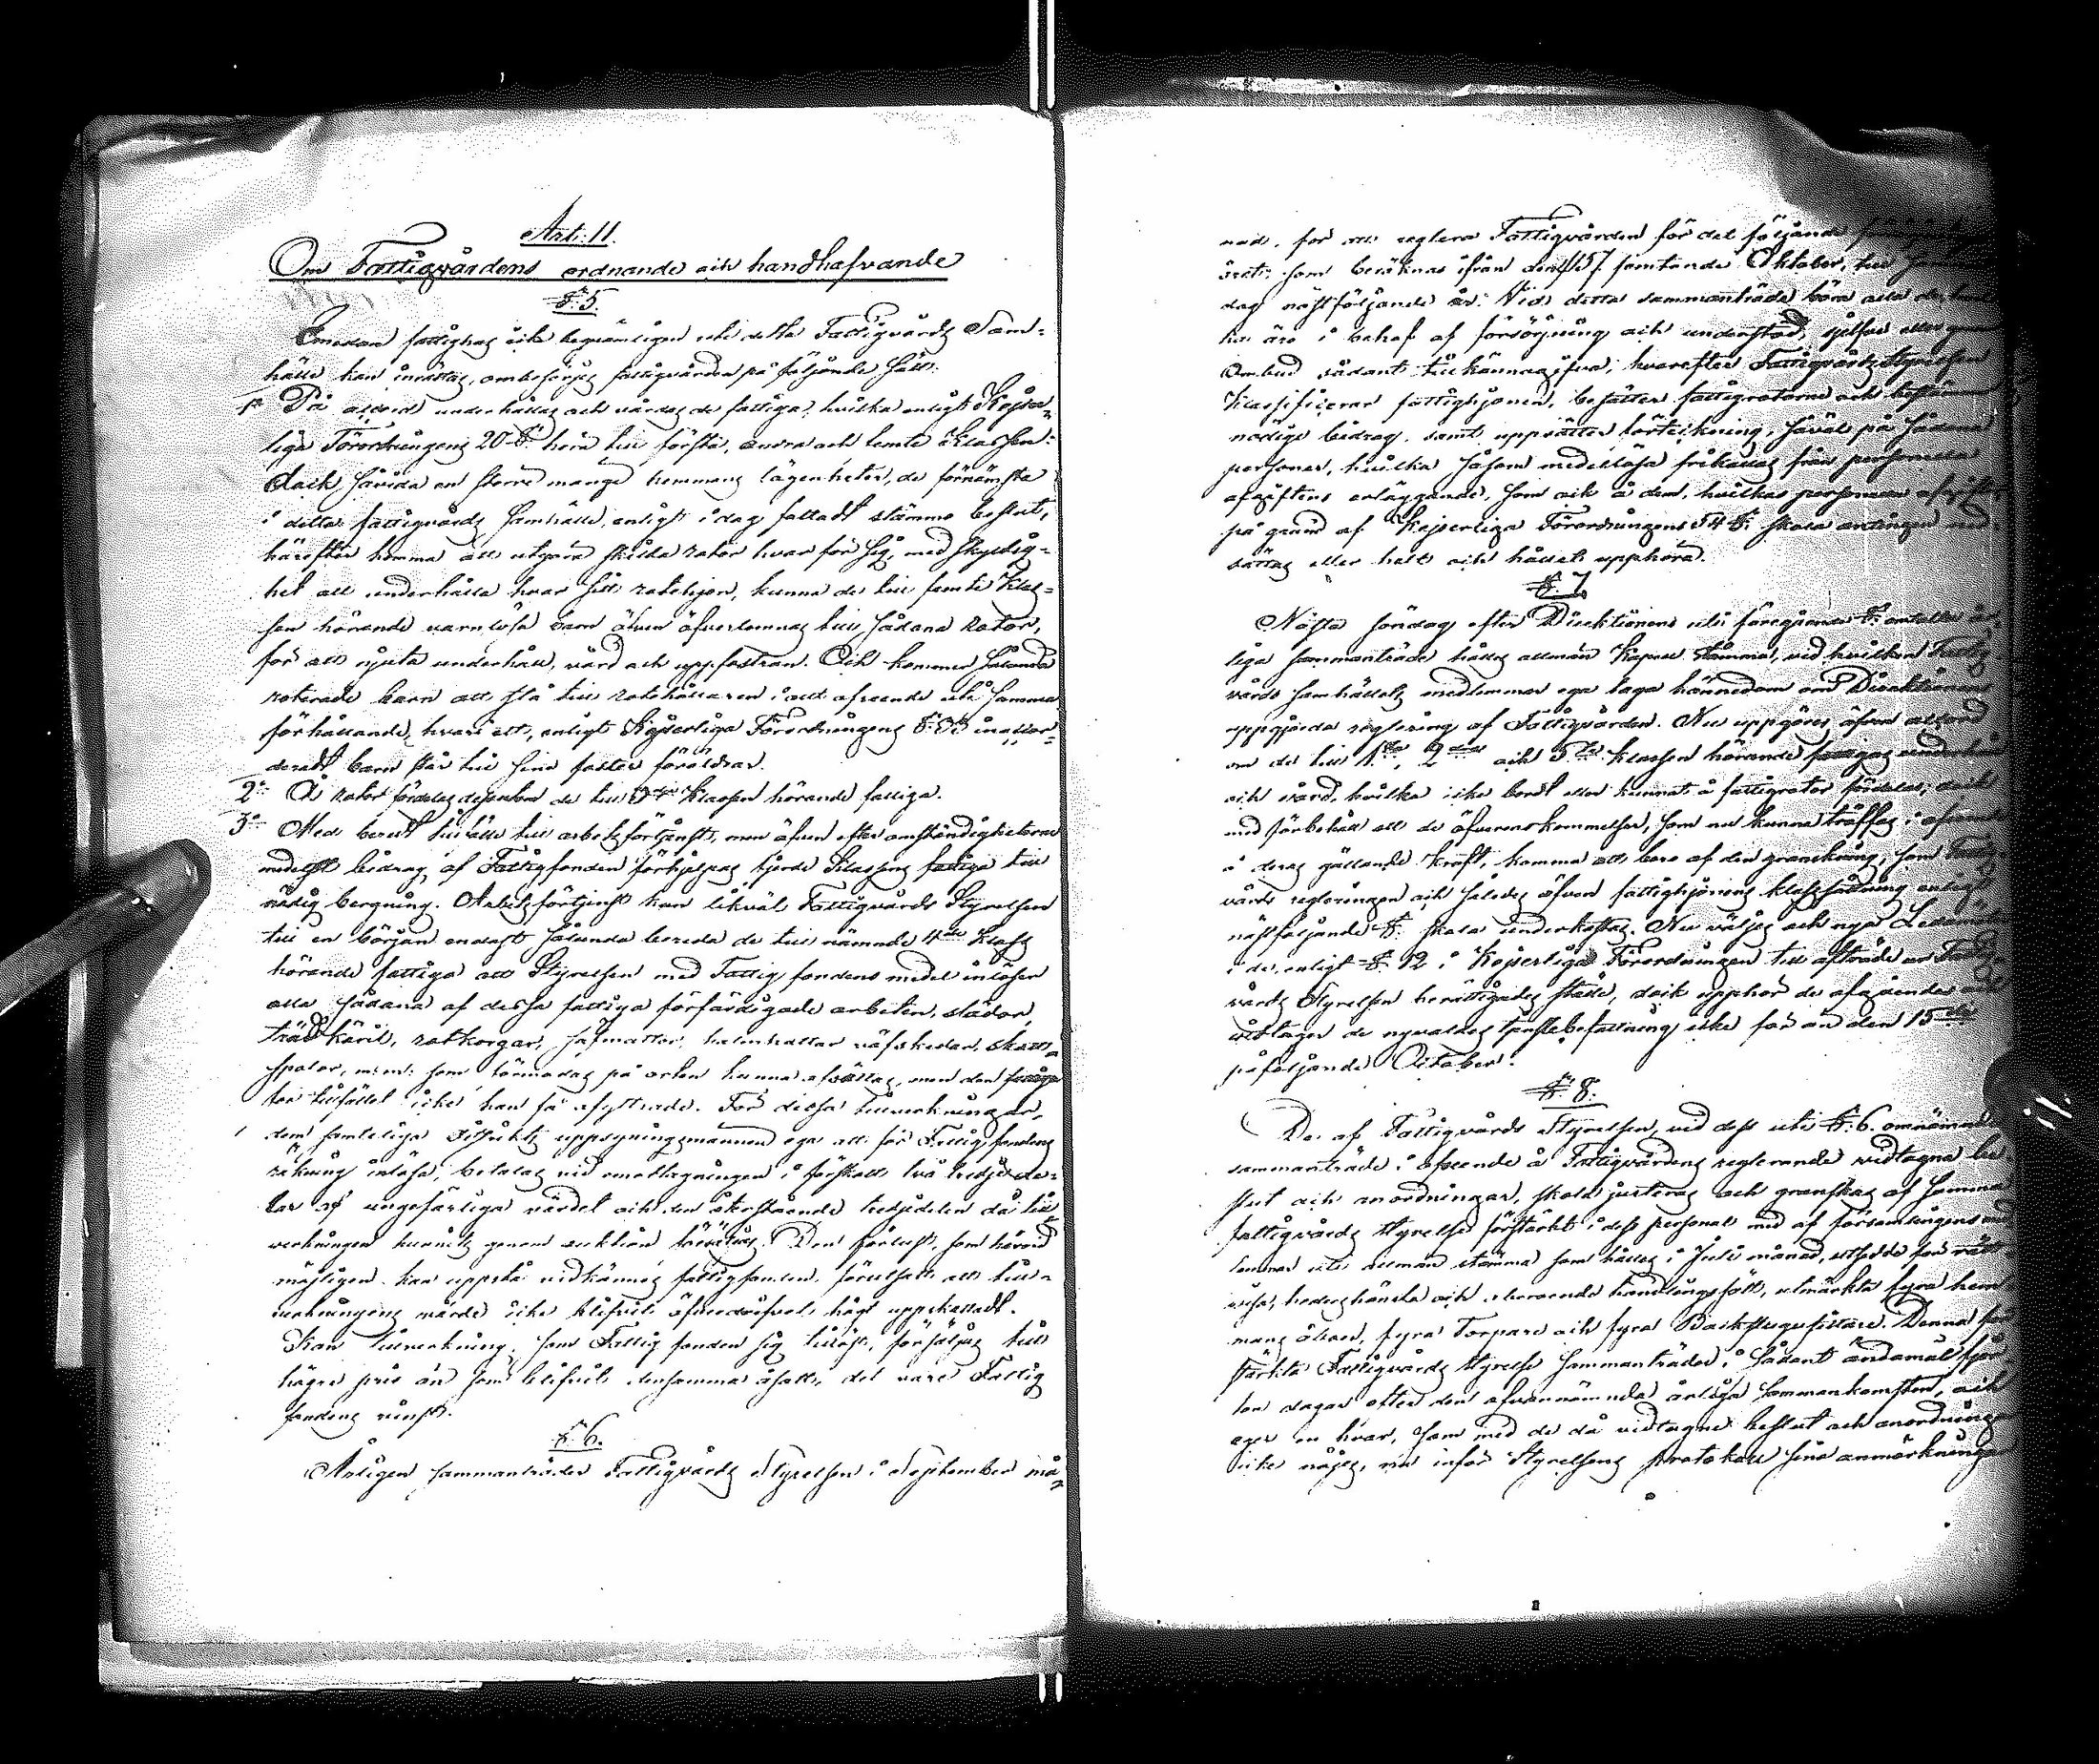 Art: II.
Om Fattigvårdens ordnande och handhafvande
§. 5.
Emedan fattighus icke beqvämligen uti detta Fattigvårds Sam-
hälle kan inrättas, ombesörjes fattigvården på följande sätt:
1o På accord underhållas och vårdas de fattiga, hvilka enligt Kejser-
liga Förordningens 20 §. höra till första, andra och femte Klassen.
Dock såvida en större mängd hemmans lägenheter, de förnämsta
i detta fattigvårds samhälle, enligt i dag fattadt stämmo beslut,
härefter komma att utgöra skilda rotor hvar för sig, med skyldig-
het att underhålla hvar sitt rotehjon, kunna de till femte Klas-
sen hörande varnlösa barn äfven öfverlemnas till sådana rotor,
för att njuta underhåll, vård och uppfostran. Och kommer sålunda
roterade barn att stå till rotehållaren i allt afseende uti samma
förhållande, hvari ett, enligt Kejserliga Förordningens §. 33 inackor-
deradt barn står till sina foster föräldrar.
2o Å rotor fördelas dessutom de till 3dje Klassen hörande fattiga.
3o Med beredt tillfälle till arbetsförtjenst, men äfven efter omständigheterna
medelst bidrag af Fattigfonden förhjelpas fjerde Klassens fattiga till
nödig bergning. Arbetsförtjenst kan likväl Fattigvårds Styrelsen
till en början endast sålunda bereda de till nämnde 4de Klass
hörande fattiga att Styrelsen med Fattig fondens medel inlöser
alla sådana af dessa fattiga förfärdigade arbeten, slädor,
trädkäril, rotkorgar, säfmattor, halmhattar väfskedar,
spolar, m: m: som förmodas på orten kunna afsättas, men den fattige
för tillfället icke kan få afyttrade. För dessa tillverkningar,
dem samteliga Distrikts uppsyningsmännen ega att för Fattig fondens
räkning inlösa, betalas vid emottagningen i förskott två tredjede-
lar af ungefärliga värdet och den återstående tredjedelen då till-
verkningen hunnits genom auktion försäljas. Den förlust, som härvid
möjligen kan uppstå vidkännes fattigfonden, förutsatt att till-
verkningens värde icke blifvit öfverdrifvet högt uppskattadt.
Kan tillverkning, som Fattig fonden sig tillöst, försäljas till
högre pris än som blifvit densamma åsatt, det vare Fattig
fondens vinst.
§. 6.
Årligen sammanträder Fattigvårds Styrelsen i September må-
nad, för att reglera Fattigvården för det följande
året, som beräknas ifrån den 15 femtonde Oktober, till samma
dag nästföljande år. Vid detta sammanträde böra alla de, hvil-
ka äro i behof af försörjning och understöd, sjelfva eller genom
Ombud sådant tillkännagifva, hvarefter Fattigvårds Styrelsen
klassificerar fattighjonen, besätter fattigrotarne och bestämmer
nödiga bidrag, samt upprätter förteckning, såväl på sådana
personer, hvilka såsom medellösa frikallas från personella
afgiftens erläggande, som ock å dem, hvilkas personella afgifter
på grund af Kejserliga Förordningens 54 §. skola antingen ned-
sättas eller helt och hållet upphöra.
§. 7.
Nästa söndag efter Direktionens uti föregående §. omtalta år-
liga sammanträde hålles allmän Kapell stämma, vid hvilken Fattig-
vårds samhällets medlemmar ega taga kännedom om Direktionens
uppgjorda reglering af Fattigvården. Nu uppgöres äfven accord
om de till 1sta, 2dra och 5te klassen hörande fattigas underhåll
och vård, hvilka icke bordt eller kunnat å fattigrotor fördelas; dock
med förbehåll att de öfverenskommelser, som nu kunna träffas i afseende
å deras gällande kraft, komma att bero af den granskning, som Fattig-
vårds regleringen och således äfven fattighjonens klassfördelning enligt
nästföljande §. skola underkastas. Nu väljes ock nya Ledamöter
i de, enligt §. 12 i Kejserliga Förordningen till afträde ur Fattig-
vårds Styrelsen berättigades ställe, dock upphör de afgåendes och
vidtager de nyvaldas tjenstebefattning icke förr än den 15de
påföljande October.
§. 8.
De af Fattigvårds Styrelsen, vid dess uti §. 6. omnämnda
sammanträde i afseende å Fattigvårdens reglerande vidtagna be-
slut och anordningar, skola justeras och granskas af samma
fattigvårds styrelse förstärkt i dess personal med af församlingens med-
lemmar uti allmän stämma som hålles i Juli månad, utsedde för rätt-
visa, hederskänsla och oberoende handlingssätt, utmärkta fyra hem-
mans åboer, fyra Torpare och fyra Backstugusittare. Denna för-
stärkta Fattigvårds styrelse sammanträder i sådant ändamål fjor-
ton dagar efter den ofvannämnda årliga sammankomsten, och
eger en hvar, som med de då vidtagne beslut och anordningar
icke nöjes, nu inför Styrelsens protokoll sina anmärkningar